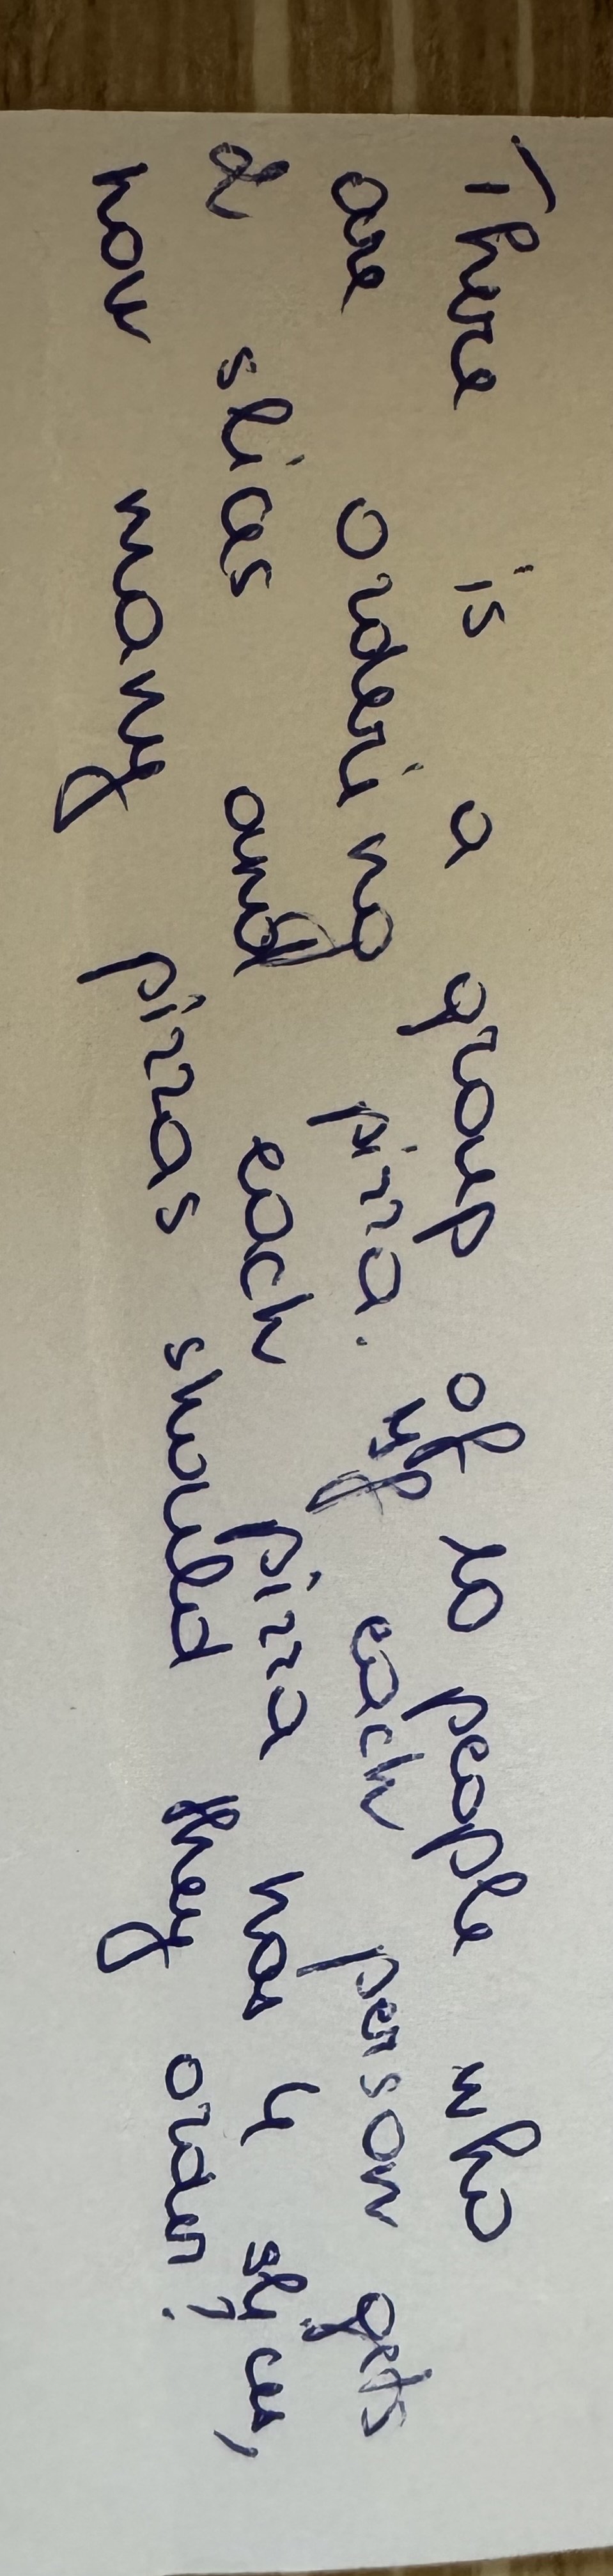 There is a group of 10 people who
are ordering pizza. If each person gets
2 slices and each pizza has 4 slices,
how many pizzas should they order?